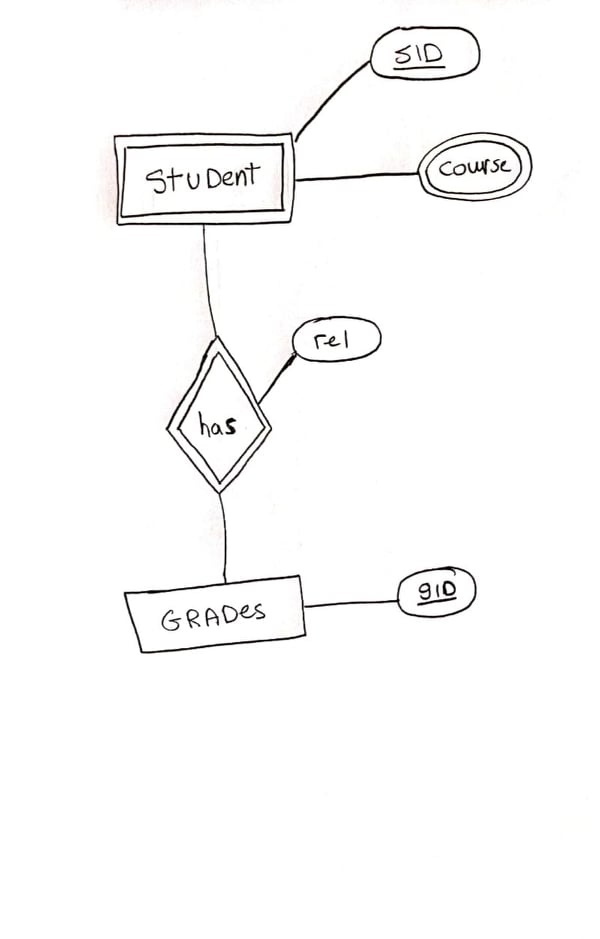 SID
StuDent
course
rel
has
GRADes
gID